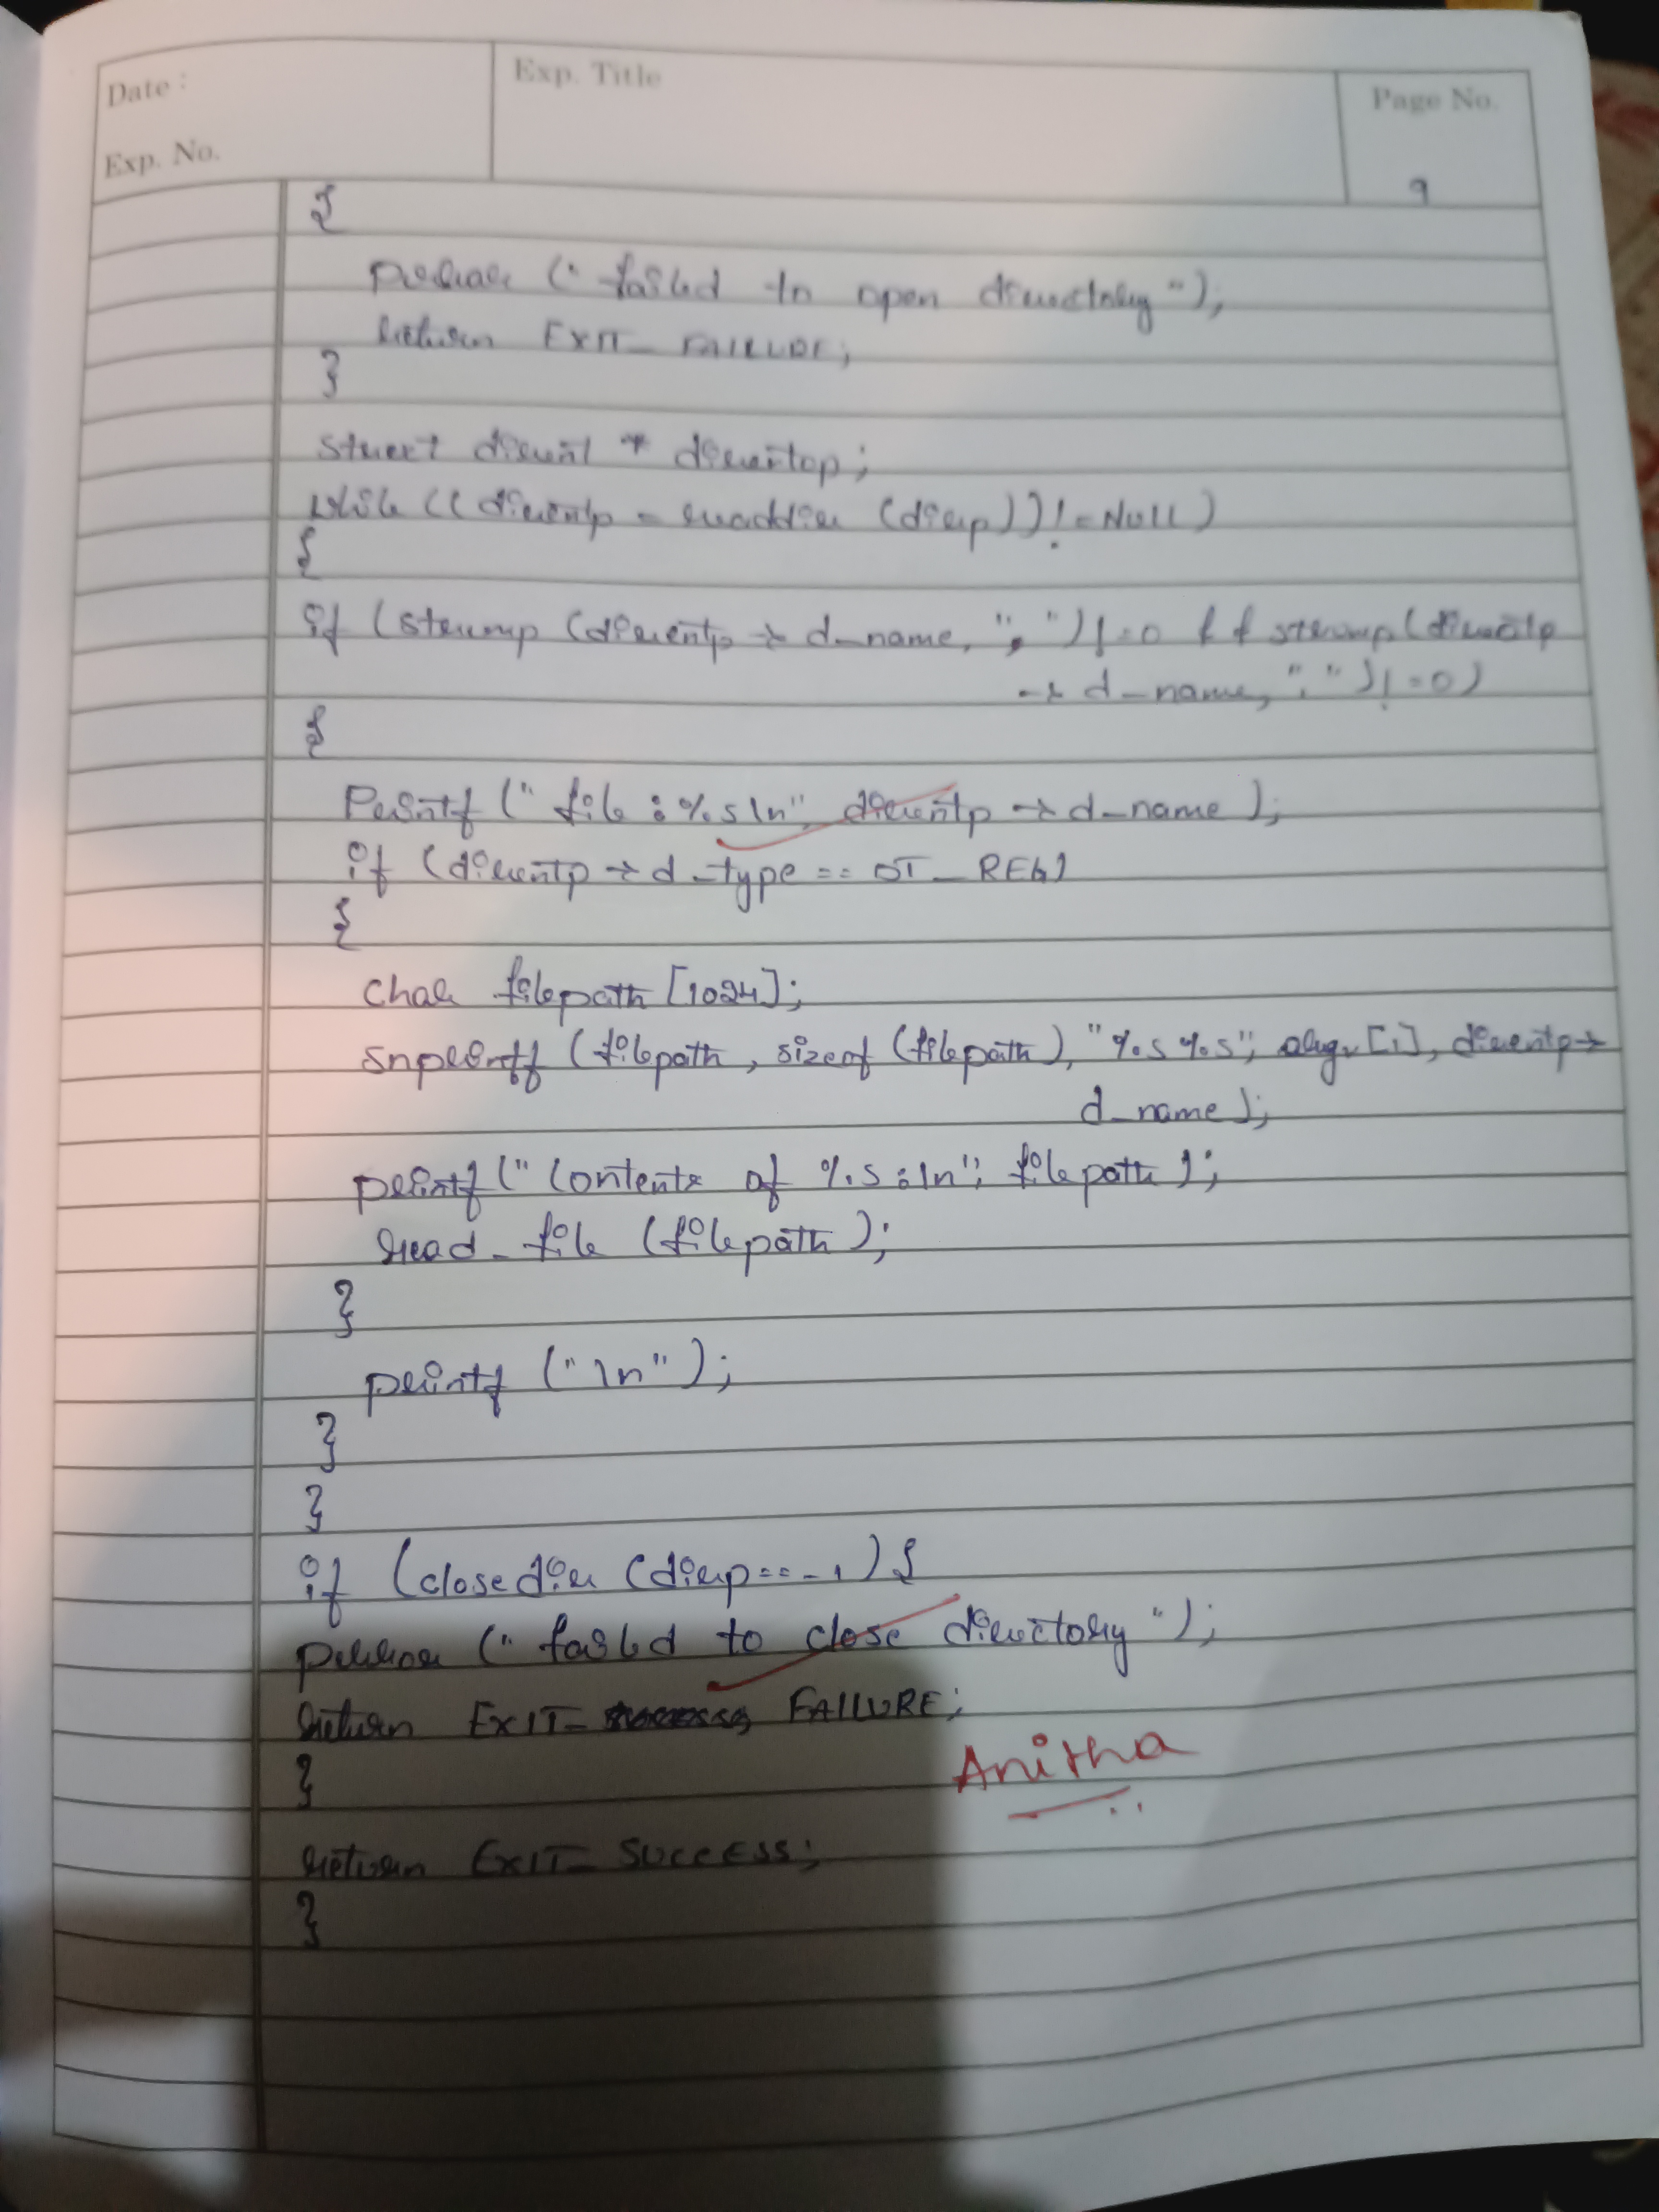 Date :
Exp. No.
Exp. Title
Page No.
9
{
perror (" failed to open directory ");
return EXIT_ FAILURE;
}
struct dirent * direntop;
while (( direntp = readdir (dirp)) != NULL)
{
if (strcmp (direntp -> d_name, "." ) != 0 && strcmp (direntp
-> d_name, "." ) != 0)
{
Printf (" file : %s\n", direntp -> d_name );
if (direntp -> d_type == DT_REG)
{
char filepath [1024];
snprintf (filepath , sizeof (filepath ), "%s %s", argv [1], direntp ->
d_name );
printf (" Contents of %s :\n", filepath );
read_ file (filepath );
}
printf ("\n" );
}
}
if (closedir (dirp == -1) {
perror (" failed to close directory ");
return EXIT_ FAILURE;
}
Anitha
return EXIT_ SUCCESS;
}